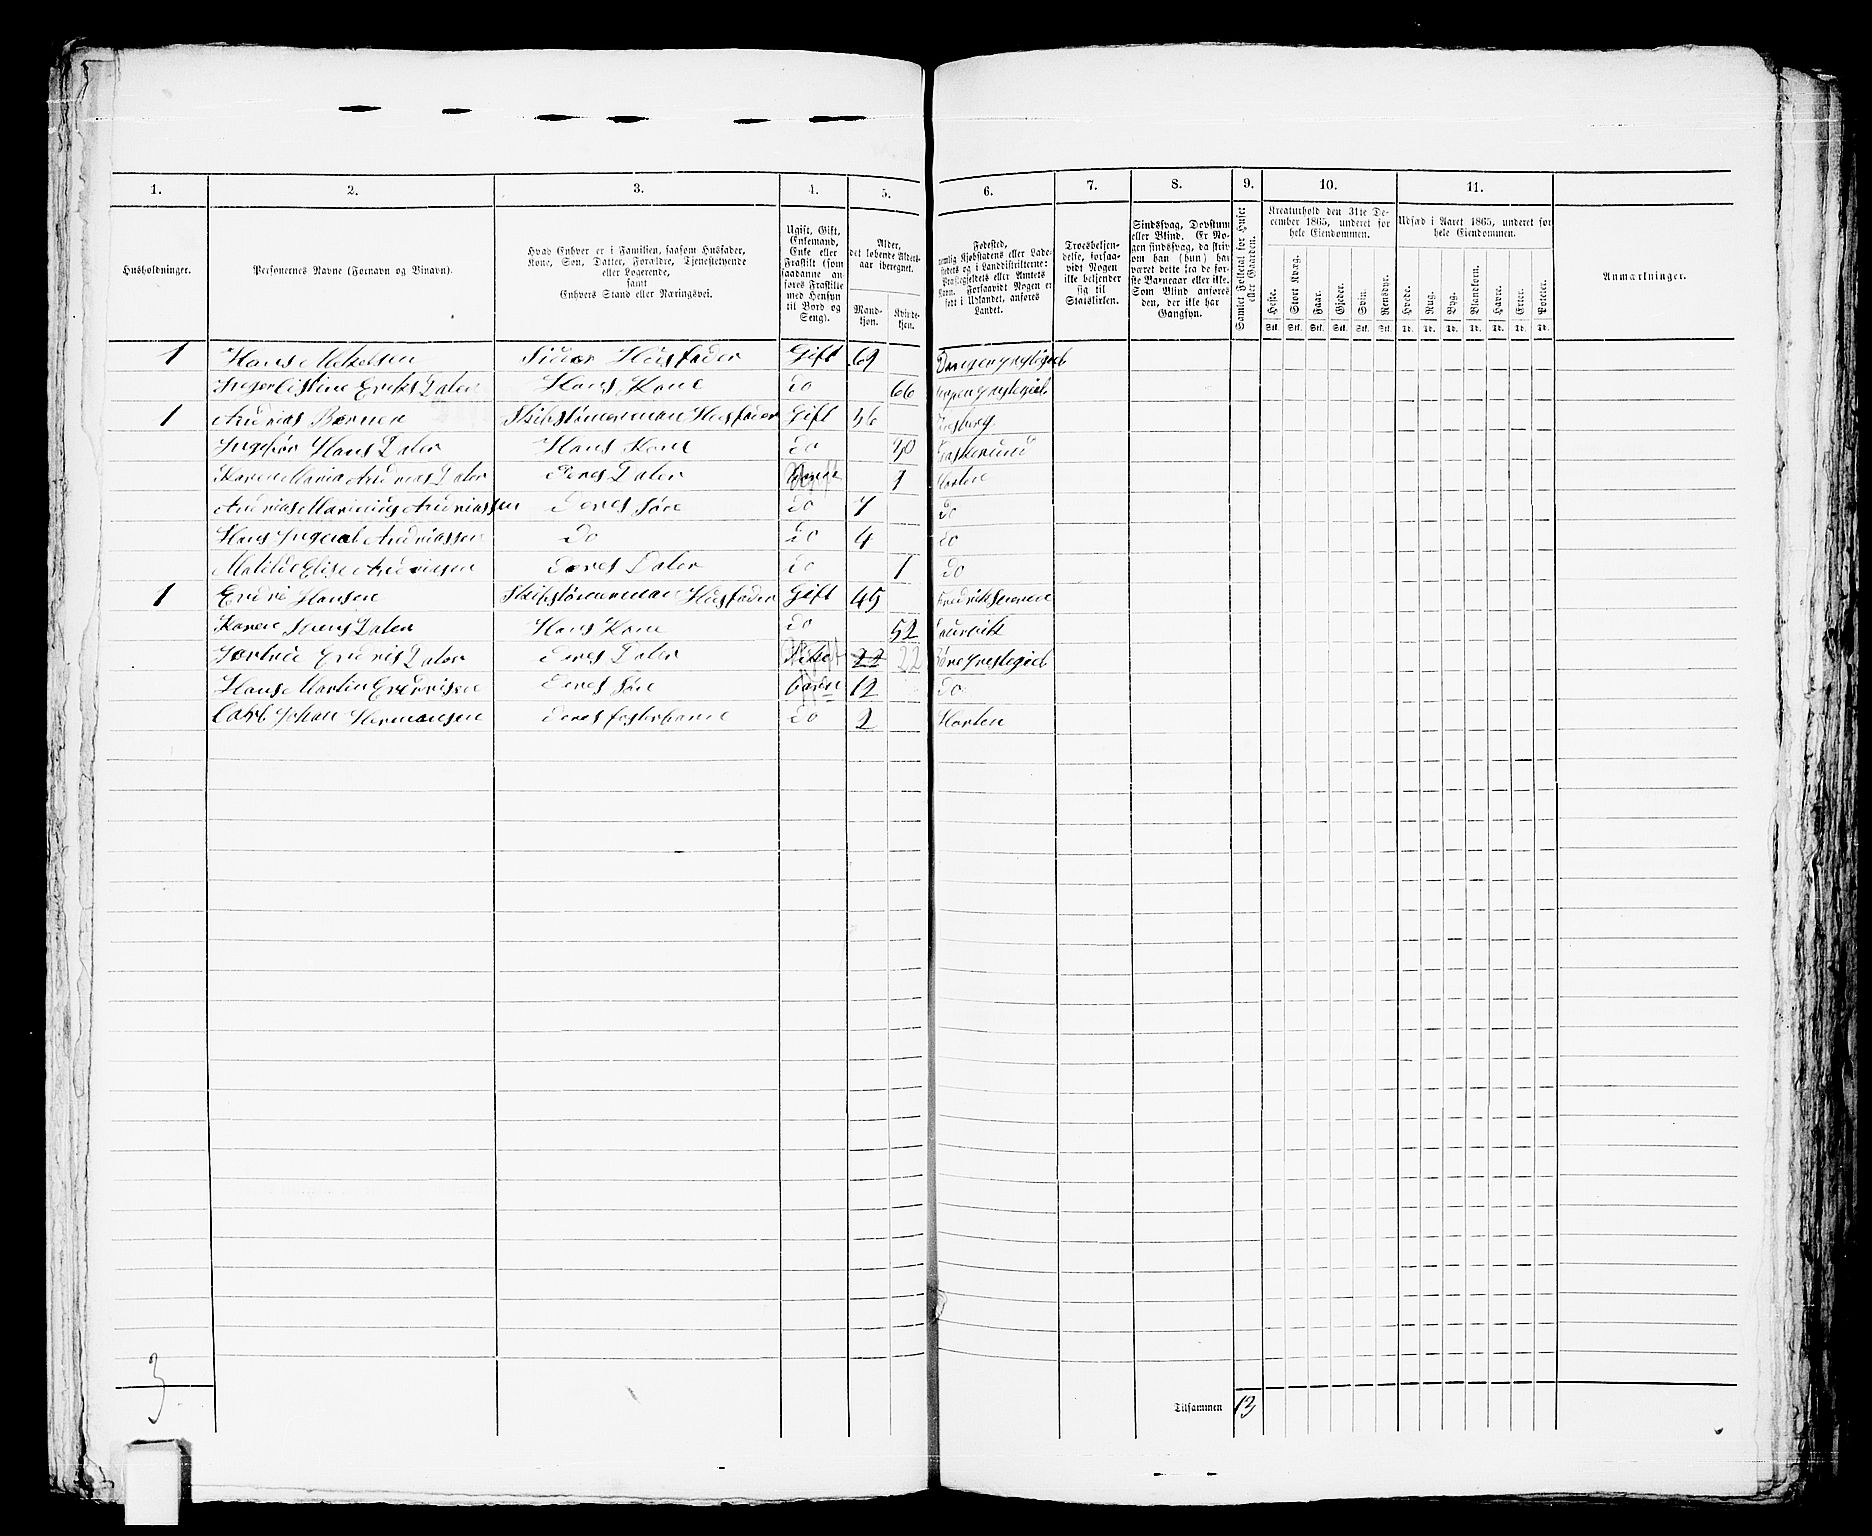 1. 2. 3. 4. 5. 6. 7. 8. 9. 10. 11.
Husholdninger.
Personernes Navne (Fornavn og Vinavn).
Hvad Enhver er i Familien, saasom Husfader,
Kone, Søn, Datter, Forældre, Tjenestetyende
eller Logerende,
samt
Enhvers Stand eller Næringsvei.
Ugift, Gift,
Enkemand,
Enke eller
Fraskilt (som
saadanne an-
føres Fraskilte
med Hensyn
til Bord og
Seng).
Alder,
det løbende Alders-
aar iberegnet.
Mand-
kjøn.
Kvinde-
kjøn.
Fødested,
nemlig Kjøbstadens eller Lade-
stedets og i Landdistrikterne:
Præstegjeldets eller Amtets
Navn. Forsaavidt Nogen er
født i Udlandet, anføres
Landet.
Troesbekjen-
delse, forsaa-
vidt Nogen
ikke bekjender
sig til
Statskirken.
Sindssvag, Døvstum
eller Blind. Er No-
gen sindssvag, da skriv
om han (hun) har
været dette fra de før-
ste Barneaar eller ikke.
Som Blind anføres
den, der ikke har
Gangsyn.
Samlet Folketal for Huset
eller Gaarden.
Kreaturhold den 31te De-
cember 1865, underet for
hele Eiendommen.
Heste. Stort Kvæg. Faar. Gjeder. Svin. Rensdyr.
Stk. Stk. Stk. Stk. Stk. Stk.
Udsæd i Aaret 1865, underet for
hele Eiendommen.
Hvede. Rug. Byg. Blandkorn. Havre. Erter. Poteter.
Td. Td. Td. Td. Td. Td. Td.
Anmærkninger.
1 Hans Mikelsen Husfader Gift 69
Eriks Dater Hans Kone do 66
1 Andrias Skibstömerman Husfader Gift 36
Ingebör Hans Dater Hans Kone do 30
Karen Maria Andrias Dater Deres Dater 1 Horten
Andrias Marinius Andriassen Deres Søn do 7 do
Hans Andriassen Do do 4 do
Matilde Elise Andriasen Deres Dater do 1 do
1 Hansen Skibstömerman Husfader Gift 45
Karen Jens Dater Hans Kone do 52 Laurvik
Dater Deres Dater 22 22
Hans Martin Deres Søn 12 do
Carl Johan Hermansen Deres fosterbarn do 2 Horten
3
Tilsammen 13